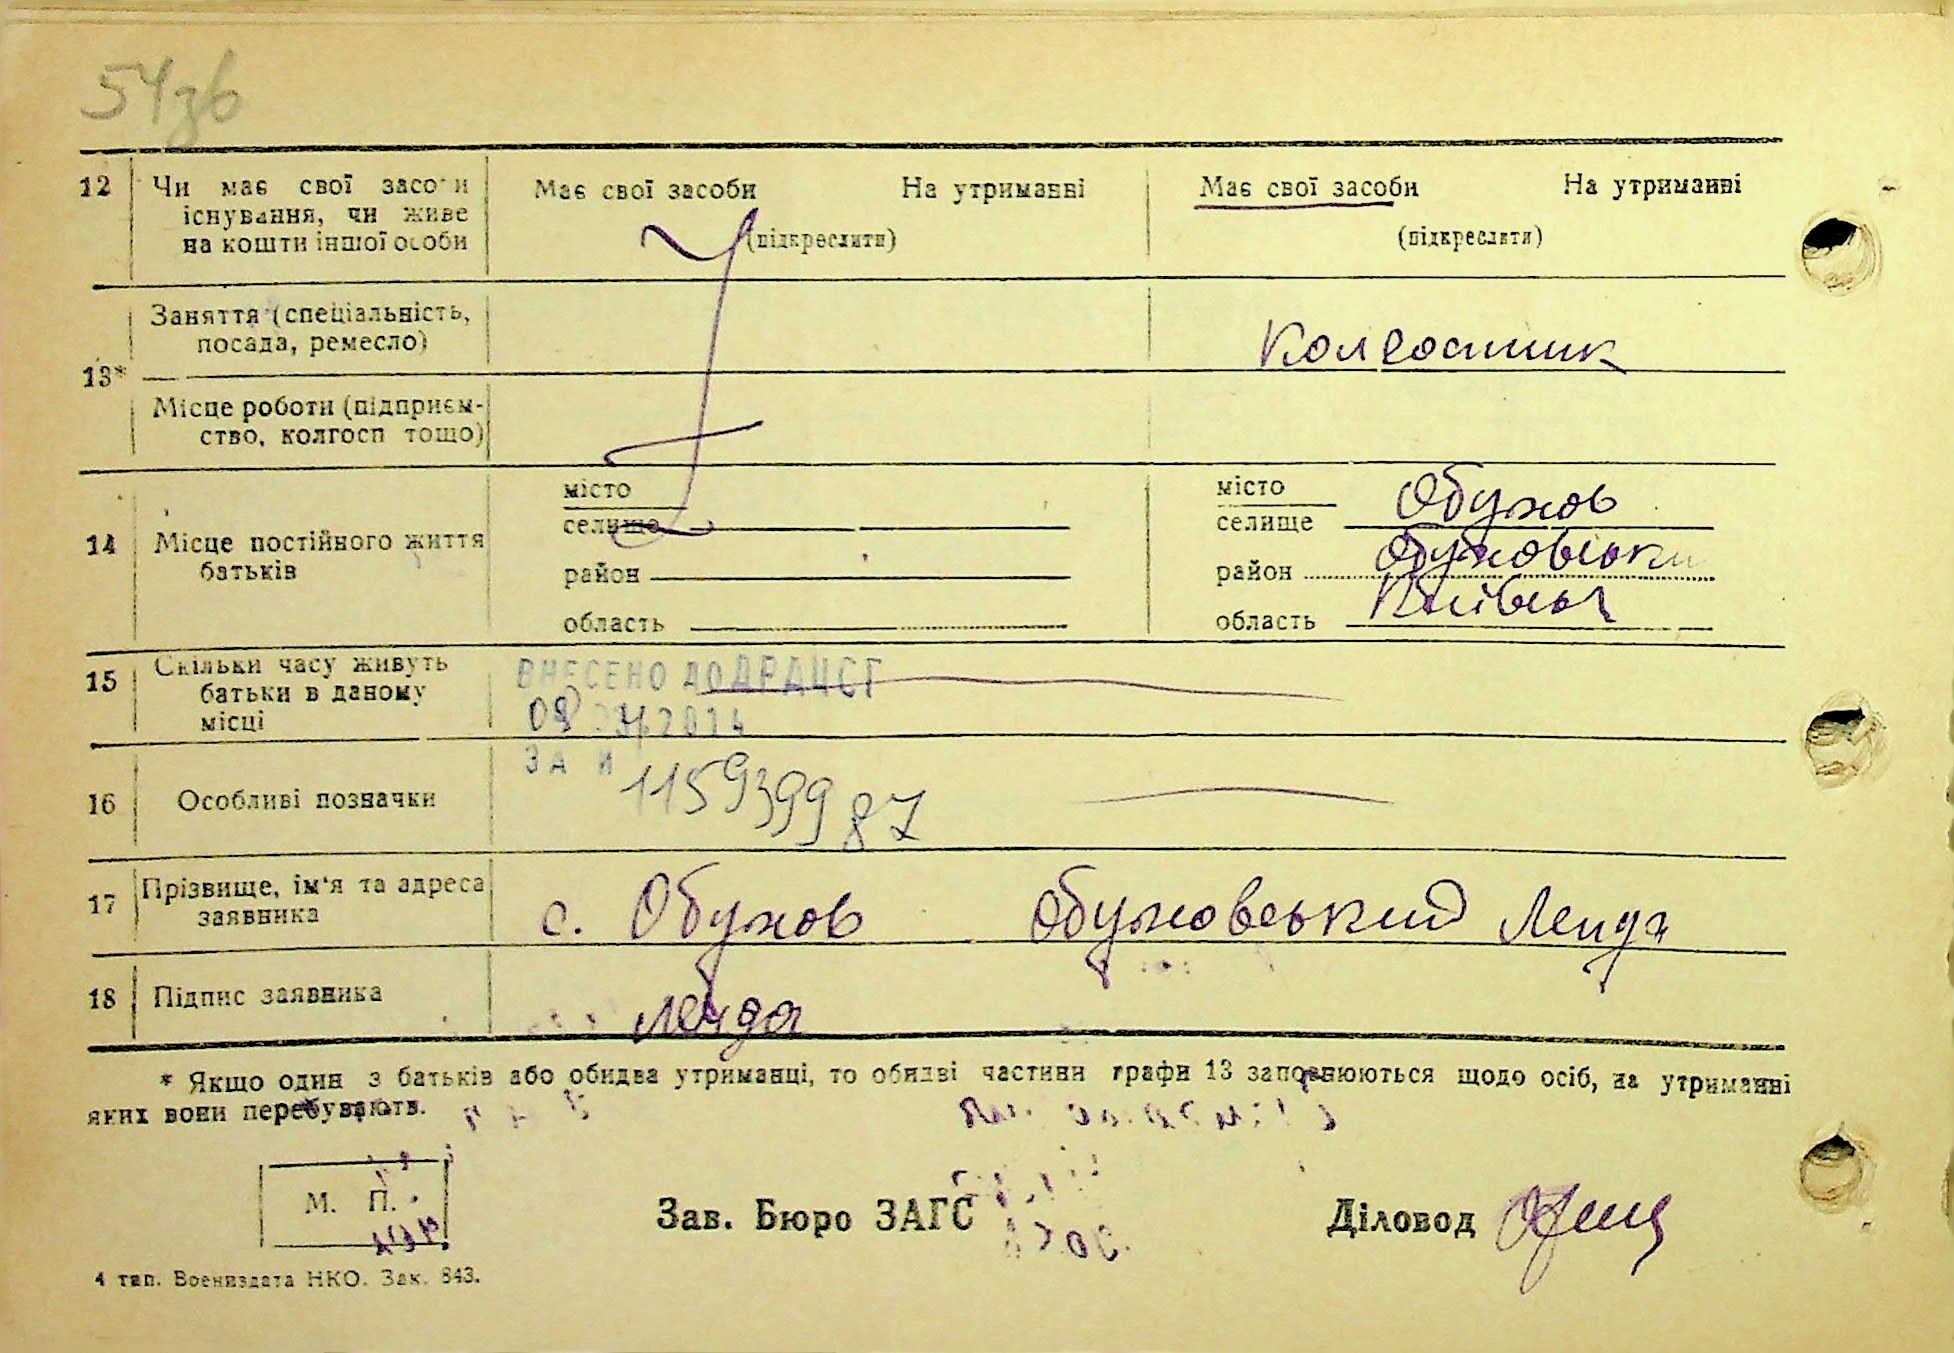 54зв
12 Чи має свої засоби Має свої засоби На утриманні Має свої засоби На утриманні
існування, чи живе (підкреслити) (підкреслити)
на кошти іншої особи
Заняття (спеціальність,
посада, ремесло) Колгоспник
13*
Місце роботи (підприєм-
ство, колгосп тощо)
місто місто Обухов
селище селище
14 Місце постійного життя район район Обуховськи
батьків область область Київськ
15 Скільки часу живуть ВНЕСЕНО ДО ДРАЦСГ
батьки в даному
місці
ЗА №
16 Особливі позначки 115939987
17 Прізвище, ім'я та адреса
заявника с. Обухов Обуховський Ленда
18 Підпис заявника Ленда
* Якщо один з батьків або обидва утриманці, то обидві частини графи 13 заповнюються щодо осіб, на утриманні
яких вони перебувають.
М. П. Зав. Бюро ЗАГС Діловод
4 тип. Воениздата НКО. Зак. 843.